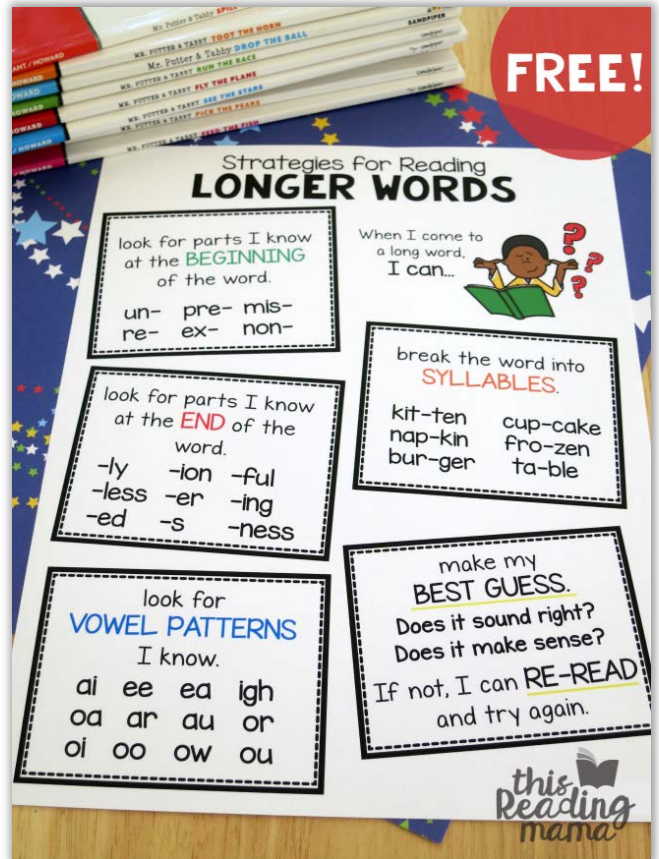 Mr. Putter & Tabby SPILL
MR. PUTTER & TABBY TOOT THE HORN
Mr. Putter & Tabby DROP THE BALL
MR. PUTTER & TABBY RUN THE RACE
MR. PUTTER & TABBY FLY THE PLANE
MR. PUTTER & TABBY SEE THE STARS
MR. PUTTER & TABBY PICK THE PEARS
MR. PUTTER & TABBY FEED THE FISH
SANDPIPER
ANT / HOWARD
HOWARD
HOWARD
/ HOWARD
FREE!
Strategies for Reading
LONGER WORDS
look for parts I know
at the BEGINNING
of the word.
un- pre- mis-
re- ex- non-
When I come to
a long word,
I can...
???
look for parts I know
at the END of the
word.
-ly -ion -ful
-less -er -ing
-ed -s -ness
break the word into
SYLLABLES.
kit-ten cup-cake
nap-kin fro-zen
bur-ger ta-ble
look for
VOWEL PATTERNS
I know.
ai ee ea igh
oa ar au or
oi oo ow ou
make my
BEST GUESS.
Does it sound right?
Does it make sense?
If not, I can RE-READ
and try again.
this
Reading
mama